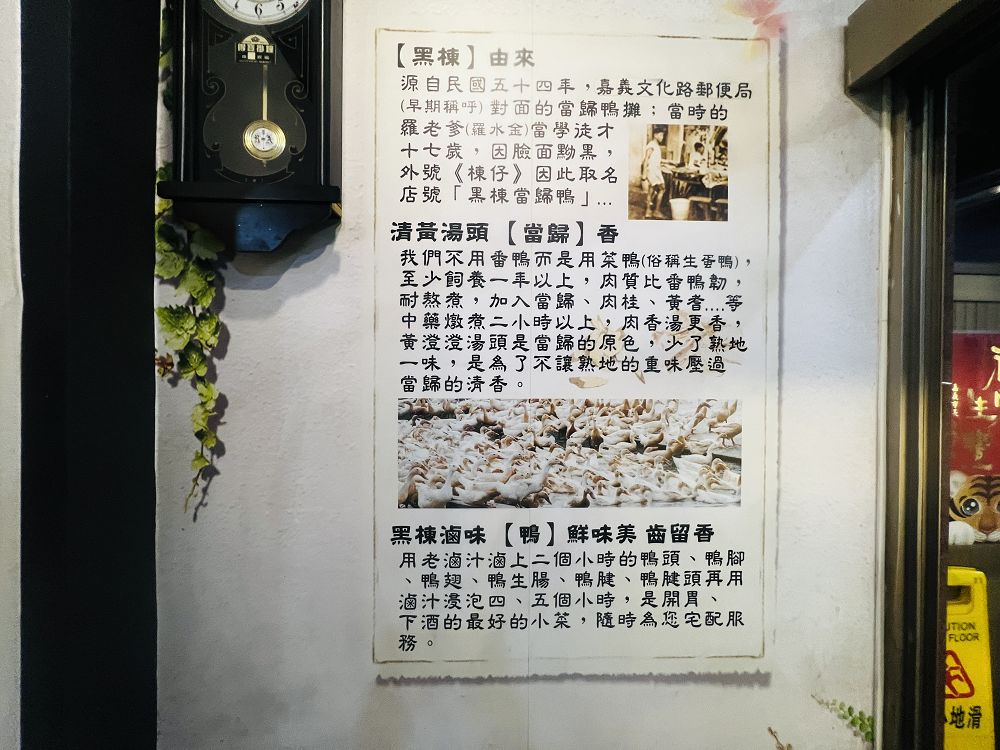 【黑棟】由來
源自民國五十四年，嘉義文化路郵便局
(早期稱呼) 對面的當歸鴨攤；當時的
羅老爹(羅水金)當學徒才
十七歲，因臉面黝黑，
外號《棟仔》因此取名
店號「黑棟當歸鴨」...
清黃湯頭【當歸】香
我們不用番鴨而是用菜鴨(俗稱生蛋鴨)，
至少飼養一年以上，肉質比番鴨韌，
耐熬煮，加入當歸、肉桂、黃耆....等
中藥燉煮二小時以上，肉香湯更香，
黃澄澄湯頭是當歸的原色，少了熟地
一味，是為了不讓熟地的重味壓過
當歸的清香。
黑棟滷味【鴨】鮮味美 齒留香
用老滷汁滷上二個小時的鴨頭、鴨腳
、鴨翅、鴨生腸、鴨腱、鴨腱頭再用
滷汁浸泡四、五個小時，是開胃、
下酒的最好的小菜，隨時為您宅配服
務。
UTION
FLOOR
心地滑